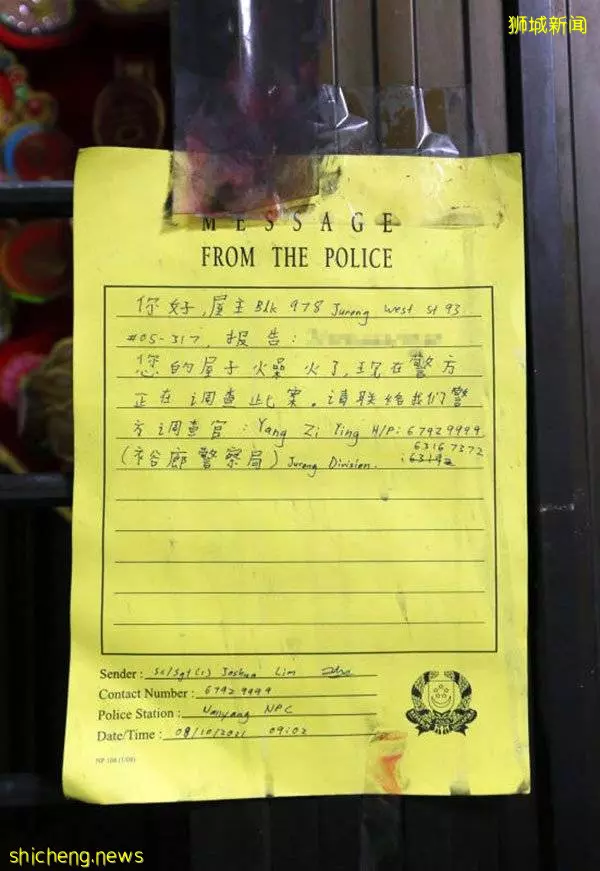 狮城新闻
MESSAGE
FROM THE POLICE
你好,屋主 Blk 978 Jurong West St 93
#05-317, 报告:
您的屋子燥火了,现在警方
正在调查此案。请联络我们警
方调查官: Yang Zi Ying H/P: 67929999
63167372
(裕廊警察局) Jurong Division.
Sender: Sgt(1) Joshua Lim
Contact Number: 67929999
Police Station: Nanyang NPC
Date/Time: 08/10/2021 09:02
shicheng.news